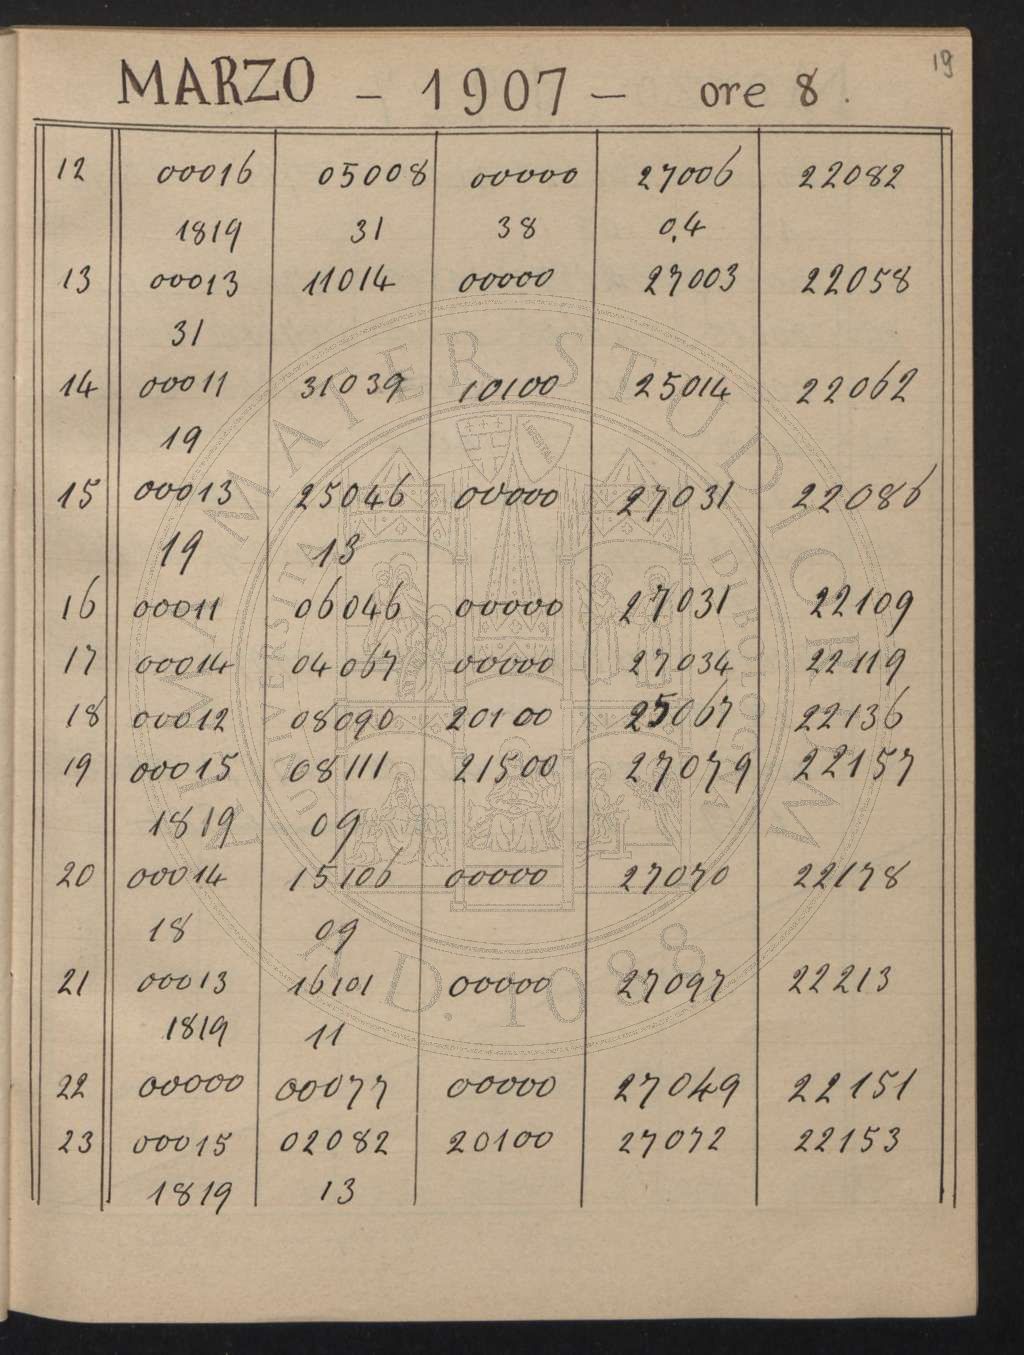 19
MARZO - 1907 - ore 8.
12 00016 05008 00000 27006 22082
1819 31 38 0.4
13 00013 11014 00000 27003 22058
31
14 00011 31039 10100 25014 22062
19
15 00013 25046 00000 27031 22086
19 13
16 00011 06046 00000 27031 22109
17 00014 04067 00000 27034 22119
18 00012 08090 20100 25067 22136
19 00015 08111 21500 27079 22157
1819 09
20 00014 15106 00000 27070 22178
18 09
21 00013 16101 00000 27097 22213
1819 11
22 00000 00077 00000 27049 22151
23 00015 02082 20100 27072 22153
1819 13
ALMA MATER STUDIORUM
A.D. 1088